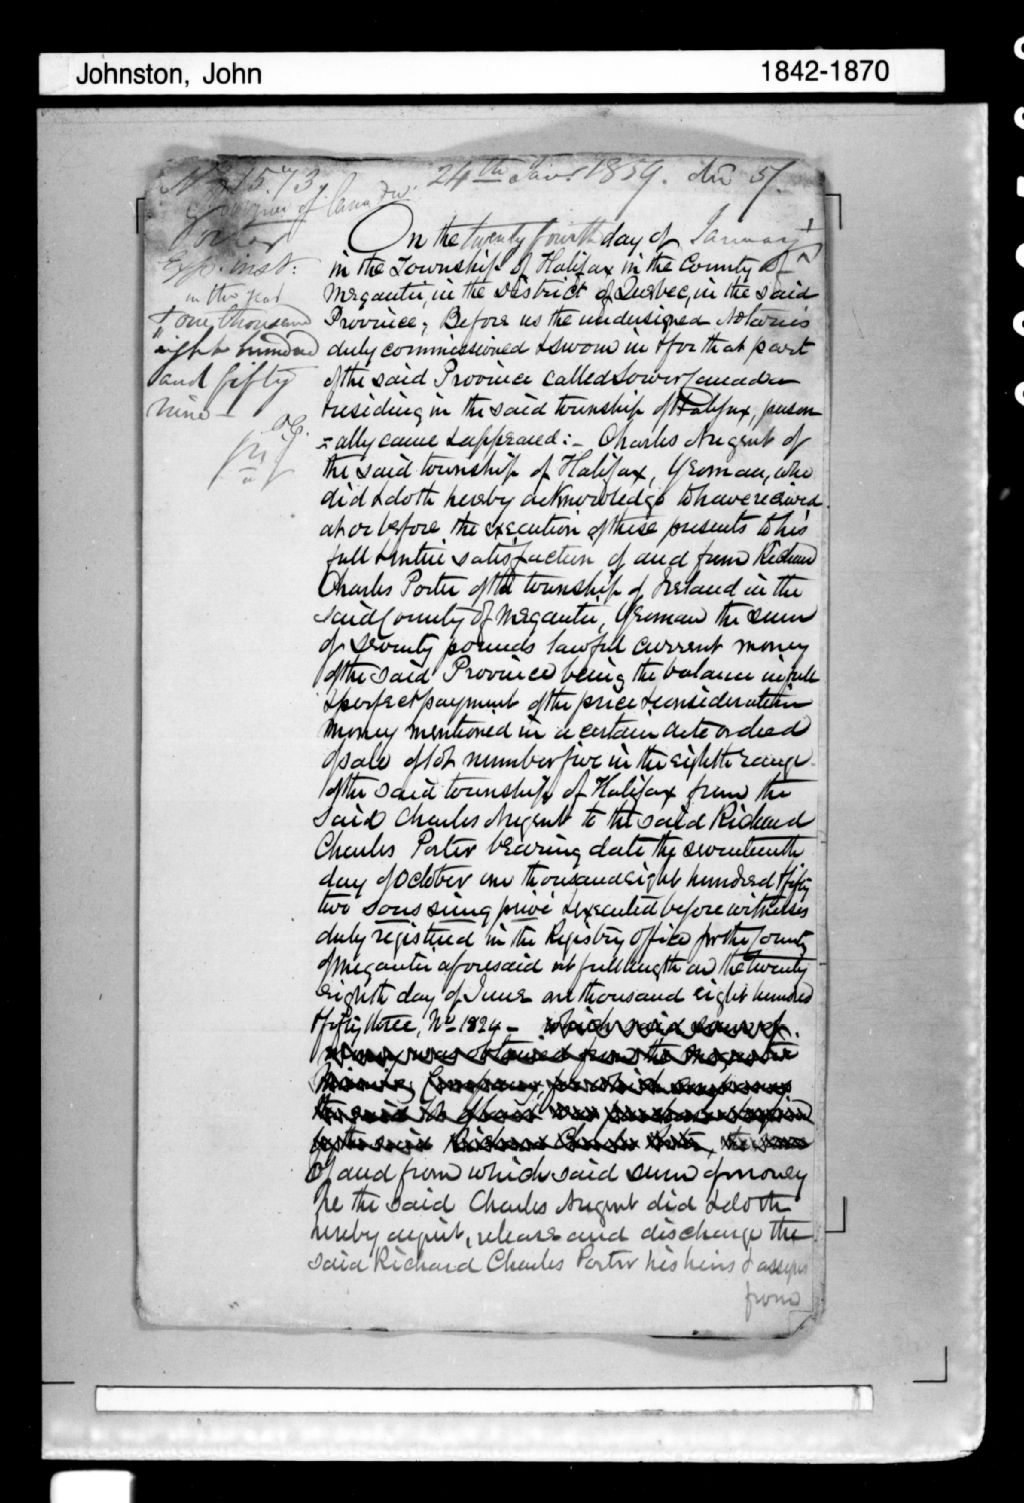 Johnston, John
1842-1870
24th Janr. 1859. No 57.
No 1573
Porter
Exp. inst:
in the year
+ one thousand
eight hundred
and fifty
nine
On the twenty fourth day of January +
in the Township of Halifax in the County of
Megantic, in the District of Quebec, in the said
Province; Before us the undersigned Notaries
duly commissioned & sworn in & for that part
of the said Province called Lower Canada
residing in the said township of Halifax, person
=ally came & appeared:- Charles Nugent of
the said township of Halifax, Yeoman, who
did & doth hereby acknowledge to have received
at or before the execution of these presents to his
full & entire satisfaction of and from Richard
Charles Porter of the township of Ireland in the
said County of Megantic, Yeoman the sum
of seventy pounds lawful current money
of the said Province being the balance in full
& perfect payment of the price & consideration
money mentioned in a certain acte or deed
of sale of lot number five in the eighth range
of the said township of Halifax from the
said Charles Nugent to the said Richard
Charles Porter bearing date the seventeenth
day of October one thousand eight hundred & fifty
two sous seing privé & executed before witnesses
duly registered in the Registry Office for the County
of Megantic aforesaid at full length on the twenty
eighth day of June one thousand eight hundred
& fifty three, No 1824 - which said sum of
money was obtained from the Megantic
Mining Company, for which
the said
by the said Richard Charles Porter, the same
Of and from which said sum of money
he the said Charles Nugent did & doth
hereby acquit, release and discharge the
said Richard Charles Porter his heirs & assigns
from